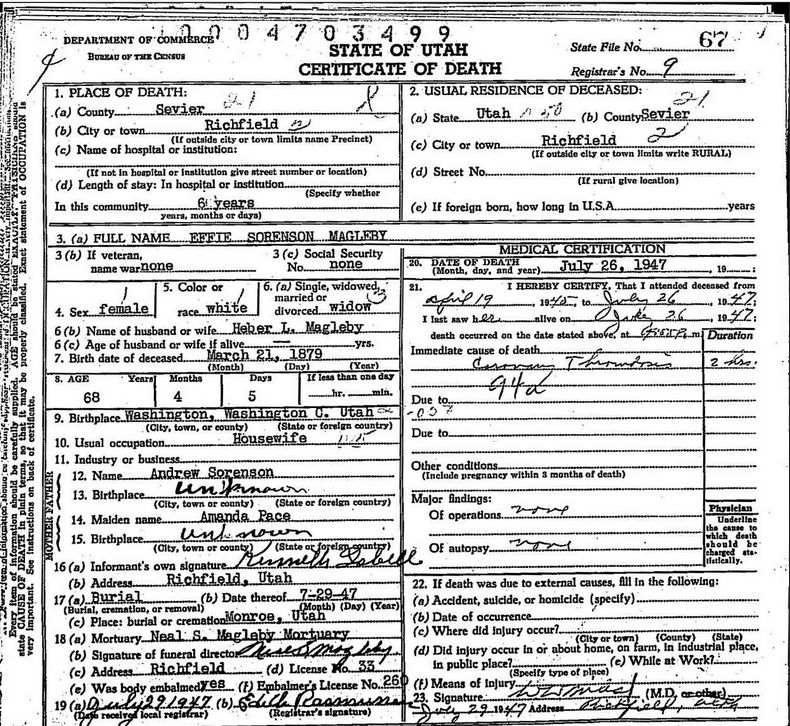 0004703499
DEPARTMENT OF COMMERCE
BUREAU OF THE CENSUS
STATE OF UTAH
CERTIFICATE OF DEATH
State File No. 67
Registrar's No. 9
1. PLACE OF DEATH:
(a) County Sevier 21
(b) City or town Richfield 2
(If outside city or town limits name Precinct)
(c) Name of hospital or institution:
(If not in hospital or institution give street number or location)
(d) Length of stay: In hospital or institution
(Specify whether
In this community 6 years
years, months or days)
2. USUAL RESIDENCE OF DECEASED:
21
(a) State Utah (b) County Sevier
(c) City or town Richfield 2
(If outside city or town limits write RURAL)
(d) Street No.
(If rural give location)
(e) If foreign born, how long in U.S.A. years
3. (a) FULL NAME EFFIE SORENSON MAGLEBY
3 (b) If veteran, name war none
3 (c) Social Security No. none
4. Sex female
5. Color or race white
6. (a) Single, widowed, married or divorced widow 3
6 (b) Name of husband or wife Heber L. Magleby
6 (c) Age of husband or wife if alive — yrs.
7. Birth date of deceased March 21, 1879
(Month) (Day) (Year)
8. AGE Years Months Days If less than one day
68 4 5 hr. min.
9. Birthplace Washington, Washington C. Utah
(City, town, or county) (State or foreign country)
10. Usual occupation Housewife
11. Industry or business
FATHER
12. Name Andrew Sorenson
13. Birthplace Unknown
(City, town or county) (State or foreign country)
MOTHER
14. Maiden name Amanda Pace
15. Birthplace Unknown
(City, town or county) (State or foreign country)
16 (a) Informant's own signature Kenneth Isbell
(b) Address Richfield, Utah
17 (a) Burial (b) Date thereof 7-29-47
(Burial, cremation, or removal) (Month) (Day) (Year)
(c) Place: burial or cremation Monroe, Utah
18 (a) Mortuary Neal S. Magleby Mortuary
(b) Signature of funeral director Neal S. Magleby
(c) Address Richfield (d) License No. 33
(e) Was body embalmed yes (f) Embalmer's License No. 260
19 (a) July 29 1947 (b) Edith Rasmussen
(Date received local registrar) (Registrar's signature)
MEDICAL CERTIFICATION
20. DATE OF DEATH
(Month, day, and year) July 26, 1947 , 19
21. I HEREBY CERTIFY, That I attended deceased from
April 19 1945 to July 26 1947
I last saw her alive on July 26 1947
death occurred on the date stated above, at m
Duration
Immediate cause of death
Coronary Thrombosis 2 hrs.
94a
Due to
Due to
Other conditions
(Include pregnancy within 3 months of death)
Major findings:
Of operations none
Of autopsy none
Physician
Underline the cause to which death should be charged statistically.
22. If death was due to external causes, fill in the following:
(a) Accident, suicide, or homicide (specify)
(b) Date of occurrence
(c) Where did injury occur?
(City or town) (County) (State)
(d) Did injury occur in or about home, on farm, in industrial place, in public place? (e) While at Work?
(Specify type of place)
(f) Means of injury
23. Signature (M.D. or other)
July 29 1947 Address Richfield, Utah
Every item of information should be carefully supplied. AGE should be stated EXACTLY. PHYSICIANS should
state CAUSE OF DEATH in plain terms, so that it may be properly classified. Exact statement of OCCUPATION is
very important. See instructions on back of certificate.